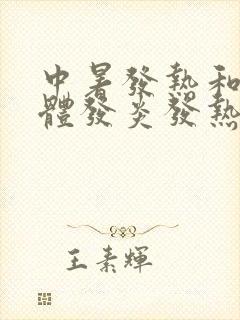 中暑發熱和
體發炎發熱
王素輝